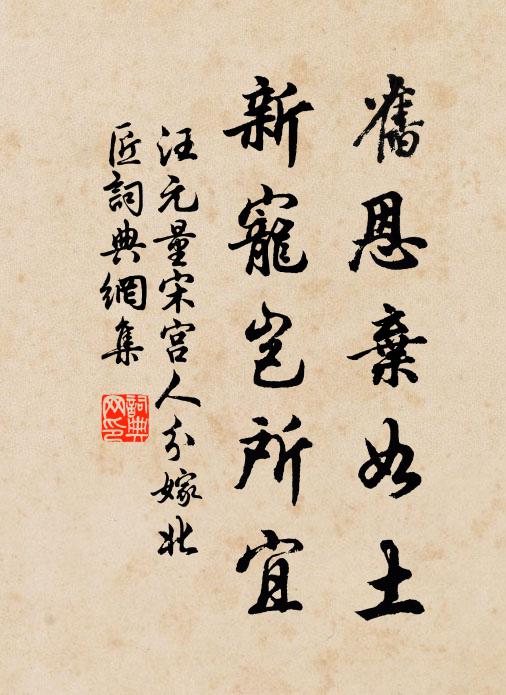 舊恩棄如土
新寵豈所宜
汪元量宋宮人分嫁北
匠詞典網集
詞典網印